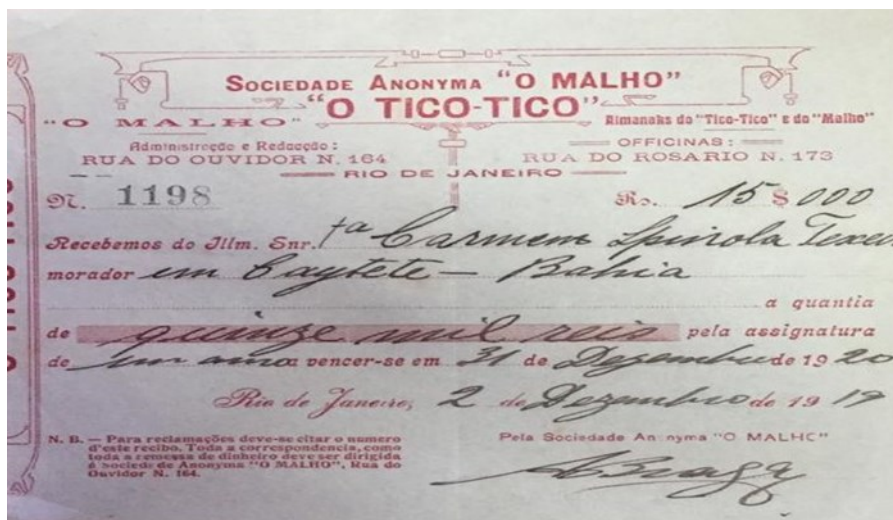 SOCIEDADE ANONYMA "O MALHO"
"O MALHO" "O TICO-TICO" Almanaks do "Tico-Tico" e do "Malho"
Administração e Redacção: OFFICINAS:
RUA DO OUVIDOR N. 164 RUA DO ROSARIO N. 173
RIO DE JANEIRO
N. 1198 Rs. 15$000
Recebemos do Illm. Snr.ta Carmem Spinola Teixei
morador em Caytete - Bahia
a quantia
de quinze mil reis pela assignatura
de um anno a vencer-se em 31 de Dezembro de 1920
Rio de Janeiro, 2 de Dezembro de 1919
N. B. — Para reclamações deve-se citar o numero
d'este recibo. Toda a correspondencia, como
toda a remessa de dinheiro deve ser dirigida
á Sociedade Anonyma "O MALHO", Rua do
Ouvidor N. 164.
Pela Sociedade Anonyma "O MALHO"
ABraga